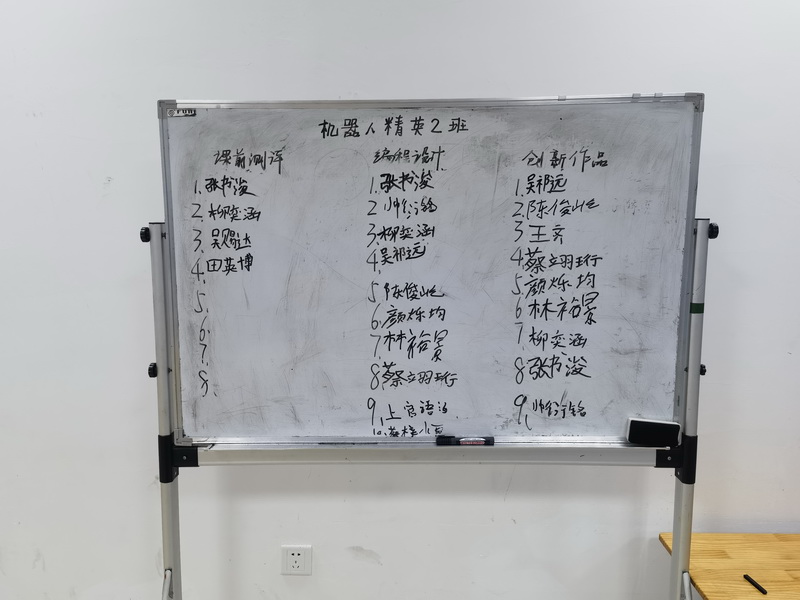 机器人精英2班
课前测评
1.张书浚
2.柳奕涵
3.吴赐达
4.田英博
5.
6.
7.
8.
编程设计
1.张书浚
2.帅衍铭
3.柳奕涵
4.吴祁远
5.陈俊屹
6.颜烁均
7.林裕景
8.蔡立羽珩
9.上官语
创新作品
1.吴祁远
2.陈俊屹
3.王
4.蔡立羽珩
5.颜烁均
6.林裕景
7.柳奕涵
8.张书浚
9.帅衍铭